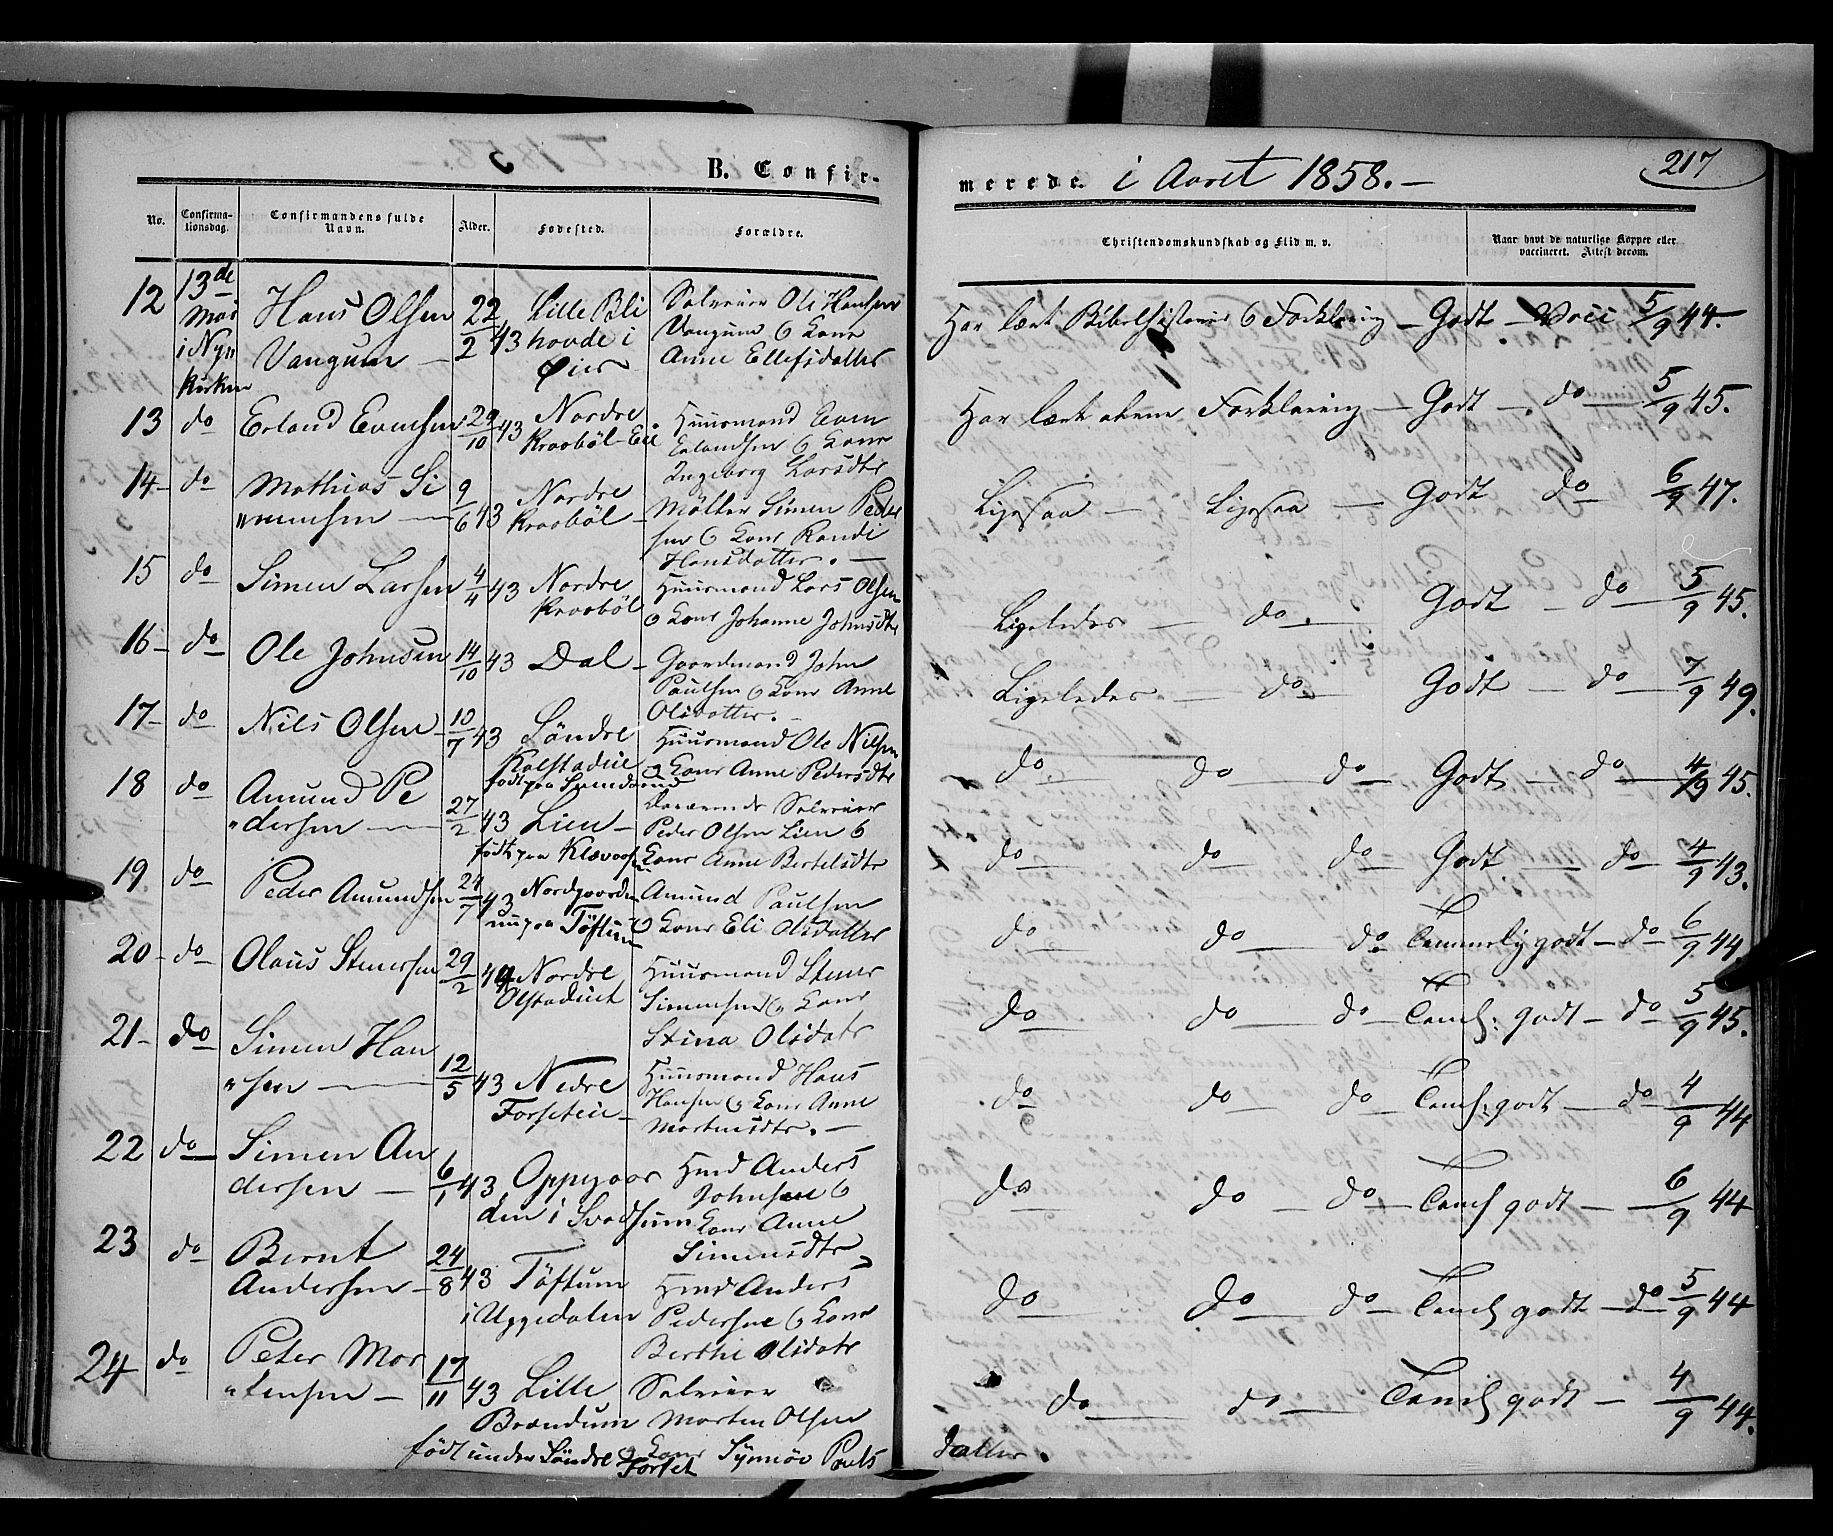 B. Confir-
merede. i Aaret 1858. -
217
No.
Confirma-
tionsdag.
Confirmandens fulde
Navn.
Alder.
Fødested.
Forældre.
Christendomskundskab og Flid m. v.
Naar havt de naturlige Kopper eller
vaccineret. Attest derom.
12 13de Mai i Nyn Kirken
Hans Olsen
Vangum —
22/2 43
Lille Bli
hovde i
Øier
Selveier Ole Hansen
Vangum & Kone
Anne Ellefsdatter
Har lært Bibelhistorie & Forklaring — Godt — Vacc 5/9 44. —
13 do Erland Evensen 29/10 43
Nordre
Kraabøl-Eie
Huusmand Even
Erlandsen & Kone
Ingeborg Larsdtr
Har lært Forklaring — Godt — do — 5/9 45.
14 — do Mathias Si
"mensen —
9/6 43
Nordre
Kraabøl —
Møller Simen Peder
sen & Kone Randi
Hansdatter. —
Ligesaa — Ligesaa — Godt do — 6/9 47.
15 do Simen Larsen 4/4 43
Nordre
Kraabøl
Huusmand Lars Olsen
& Kone Johanne Johnsdtr
Ligeledes — do. Godt — do — 5/9 45.
16 — do Ole Johnsen 14/10 43 Dal —
Gaardmand John
Paulsen & Kone Anne
Olsdatter. —
Ligeledes — do — Godt — do — 7/9 49.
17 — do Nils Olsen — 10/7 43
Søndre
Kalstadeie
Huusmand Ole Nilsen
& Kone Anne Pedersdtr
do — do — do — Godt — do — 4/9 45.
18 do Amund Pe
"dersen —
27/2 43
født paa
Lien —
Daværende Selveier
Peder Olsen Lien &
Kone Anne Bertelsdtr
do — do — do — Godt. — do — 4/9 43.
19 do Peder Amundsen 24/7 43
født paa
Nordgaarden
nu paa Tøftum
Amund Paulsen
& Kone Eli Olsdatter
do — do — do — Temmelig godt — do — 6/9 44.
20 — do Olaus Stenersen 29/2 44
Nordre
Olstadeiet
Huusmand Stener
Simensen & Kone
Stina Olsdatr
do — do — do — Teml: godt — do — 5/9 45.
21 — do Simen Han
"sen —
12/5 43
Nedre
Forseteie —
Huusmand Hans
Hansen & Kone Anne
Mortensdtr. —
do — do — do — Teml: godt — do — 4/9 44
22 do Simen An
dersen —
6/1 43
Oppegaar
den i Svadsum
Hmd Anders
Johnsen &
Kone Anne
Simensdtr
do — do — do — Teml godt — 6/9 44
23 do Bernt
Andersen —
24/8 43
Tøftum
i Uggedalen
Hmd Anders
Pedersen & Kone
Berthe Olsdatr
do — do — do — Teml godt — do — 5/9 44
24 do Peter Mor
"tensen —
17/11 43
Lille
Brændum
født under Søndre
Forset
Selveier
Morten Olsen
& Kone Synnøv Pouls
datter.
do — do — Teml godt — 4/9 44.